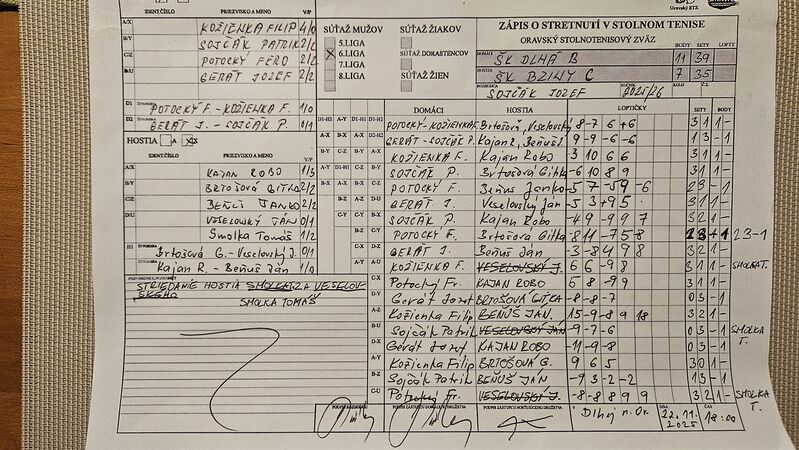 IDENT.ČÍSLO PRIEZVISKO A MENO V/P
A/X KOŽIENKA FILIP 4/0
B/Y SOJČÁK PATRIK 2/2
C/Z POTOCKÝ FERO 2/2
D/U GERÁT JOZEF 2/2
D1 POTOCKÝ F. - KOŽIENKA F. 1/0
D2 GERÁT J. - SOJČÁK P. 0/1
HOSTIA A X
IDENT.ČÍSLO PRIEZVISKO A MENO V/P
KAJAN ROBO 1/3
BRTOŠOVÁ GITKA 2/2
BEŇUŠ JANKO 2/2
VESELOVSKÝ JÁN 0/1
Smolka Tomáš 1/2
H1 Brtošová G. - Veselovský J. 0/1
Kajan R. - Beňuš Ján 1/0
STRIEDANIE HOSTIA SMOLKA ZA VESELOVSKÉHO
SMOLKA TOMÁŠ
SÚŤAŽ MUŽOV
5.LIGA
X 6.LIGA
7.LIGA
8.LIGA
SÚŤAŽ ŽIAKOV
SÚŤAŽ DORASTENCOV
SÚŤAŽ ŽIEN
Oravský BTZ
ZÁPIS O STRETNUTÍ V STOLNOM TENISE
ORAVSKÝ STOLNOTENISOVÝ ZVÄZ
BODY SETY LOPTY
DOMÁCI ŠK DLHÁ B 11 39
HOSTIA ŠK BZINY C 7 35
SOJČÁK JOZEF 2025/26
DOMÁCI HOSTIA LOPTIČKY SETY BODY
POTOCKÝ-KOŽIENKA F. Brtošová, Veselovský 8 -7 6 +6 3 1 1 -
GERÁT - SOJČÁK P. Kajan R, Beňuš -9 9 -6 -6 1 3 - 1
KOŽIENKA F. Kajan Robo 3 10 6 6 3 1 1 -
SOJČÁK P. Brtošová Gitka -6 10 8 9 3 1 1 -
POTOCKÝ F. Beňuš Janko -5 7 -5 9 -6 2 3 - 1
GERÁT J. Veselovský Ján -5 3 +9 5 3 1 1 -
SOJČÁK P. Kajan Róbo -4 9 -9 9 7 3 2 1 -
POTOCKÝ F. Brtošová Gitka -8 11 -7 5 8 2 3 - 1 23-1
GERÁT J. Beňuš Ján -3 -8 4 9 8 3 2 1 -
KOŽIENKA F. VESELOVSKÝ J. 6 6 -9 8 3 1 1 - SMOLKA T.
Potocký Fr. KAJAN ROBO 5 8 -9 9 3 1 1 -
Gerát Jozef BRTOŠOVÁ GITKA -8 -8 -7 0 3 - 1
Kožienka Filip BEŇUŠ JAN. 15 -9 8 9 18 3 2 1 -
Sojčák Patrik VESELOVSKÝ JÁN -9 -7 -6 0 3 - 1 SMOLKA T.
Gerát Jozef KAJAN ROBO -11 -9 -8 0 3 - 1
Kožienka Filip BRTOŠOVÁ G. 9 6 5 3 0 1 -
Sojčák Patrik BEŇUŠ JÁN -9 3 -2 -2 1 3 - 1
Potocký Fr. VESELOVSKÝ J. -8 -8 8 9 9 3 2 1 - SMOLKA T.
V Dlhej n. Or. DŇA 22.11. 2025 ČAS 18:00